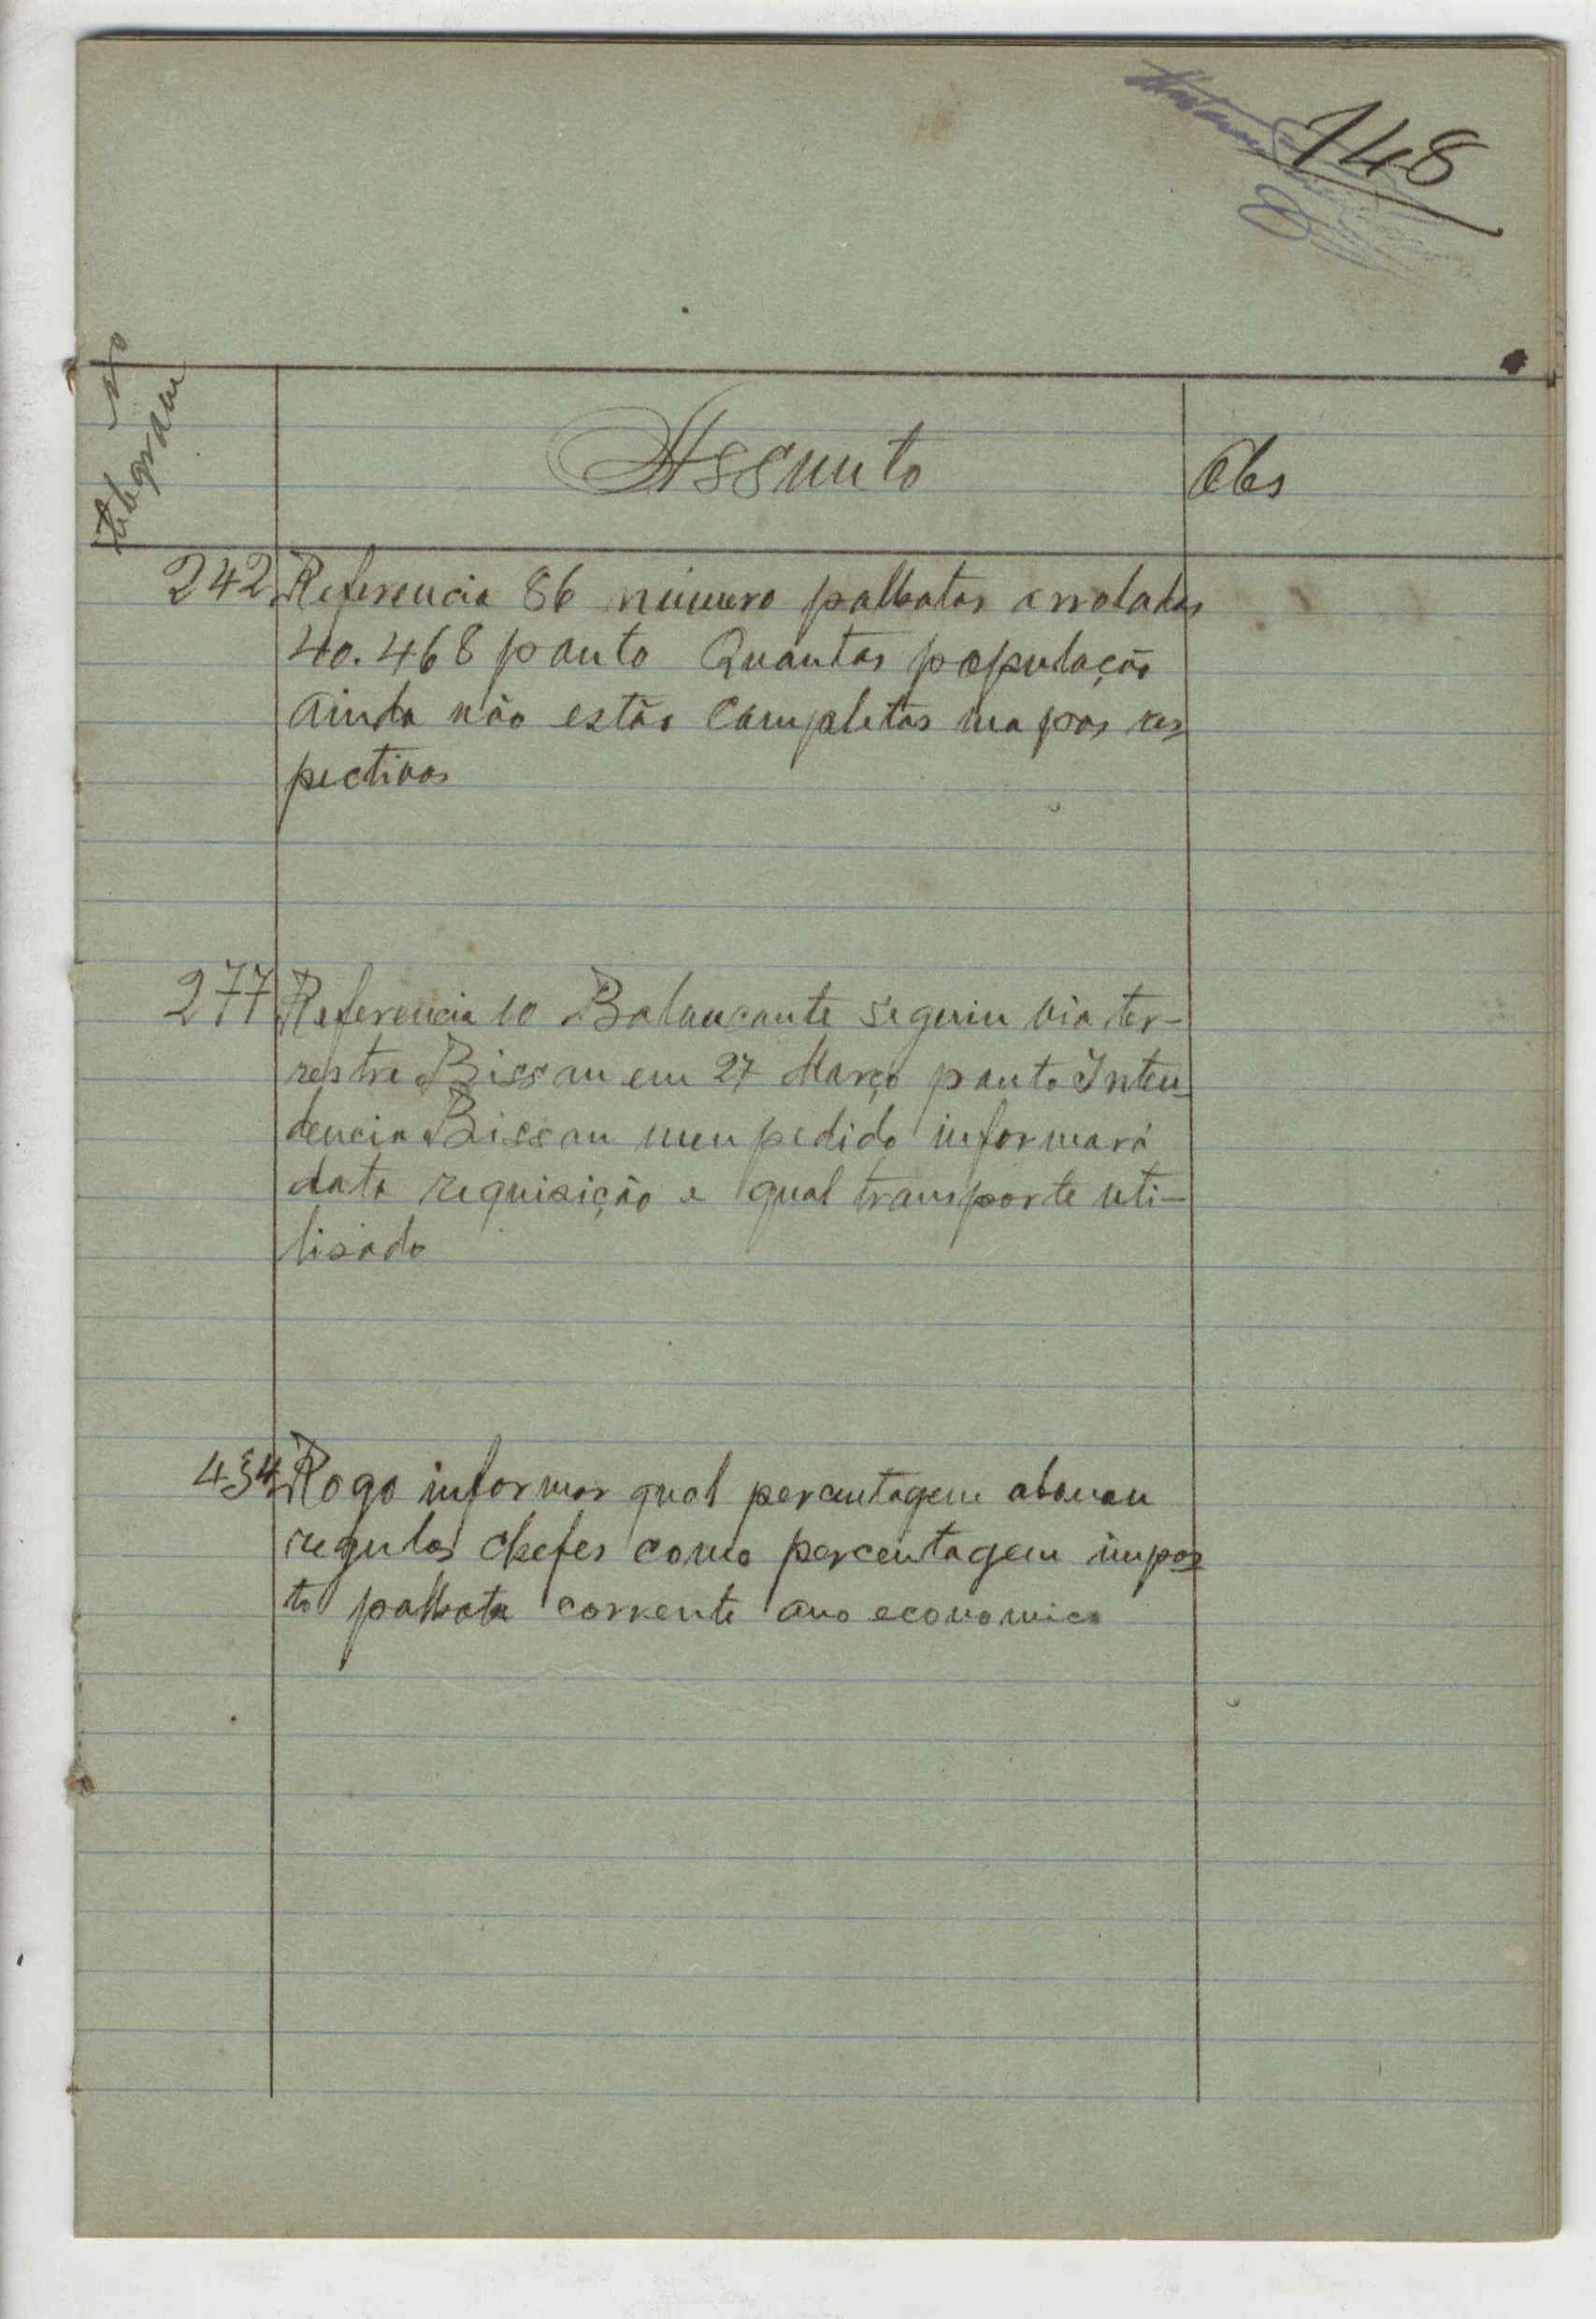 148
No
telegram
Assunto
Obs
242 Referencia 86 número palhotas arroladas
40.468 ponto Quantas população
ainda não estão completas mapas res
pectivos
277 Referencia 10 Balancante seguiu via ter-
restre Bissau em 27 Março ponto Inten
dencia Bissau meu pedido informará
data requisição e qual transporte uti-
lisado
434 Rogo informar qual percentagem abonou
regulos chefes como percentagem impos
to palhota corrente ano economico